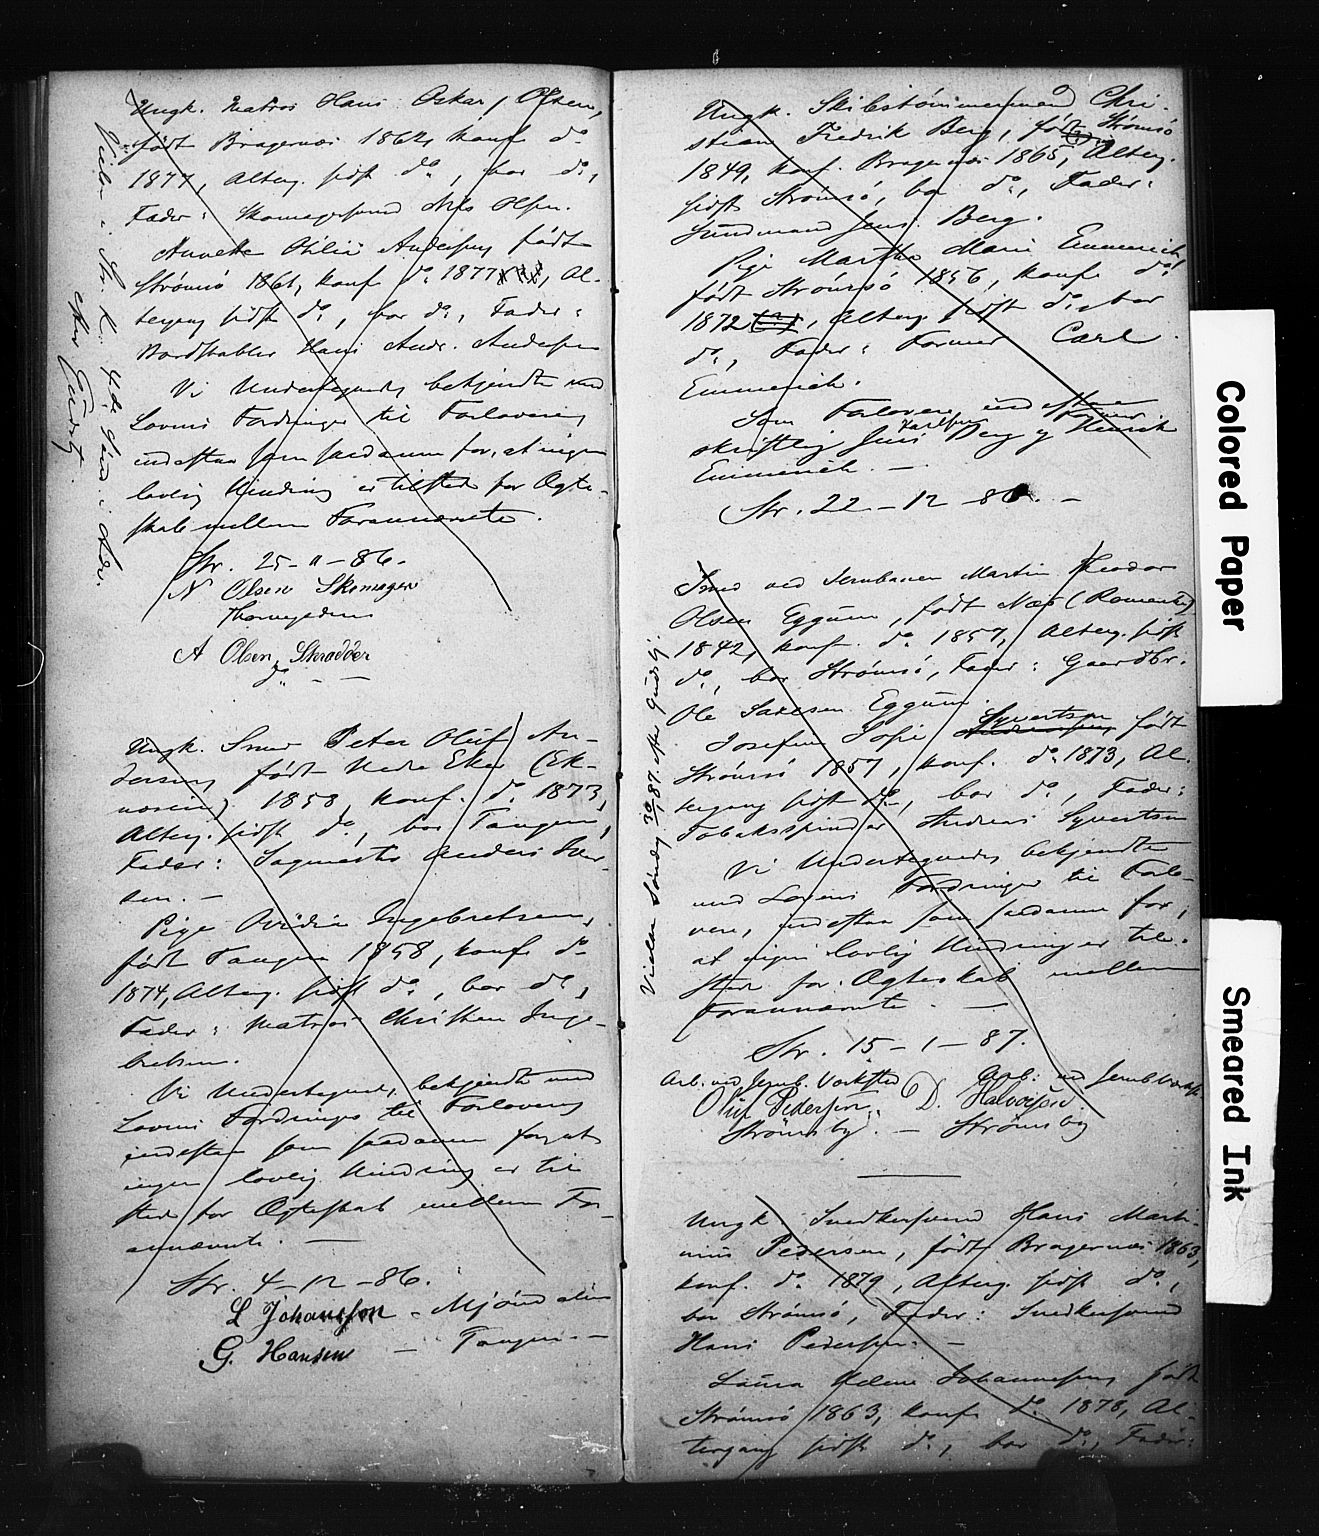 Ungk. Matros Hans Oskar Olsen,
født Bragernæs 1862, konf. do
1877, Alterg. sidst do, bor do,
Fader: Skomagersvend Nils Olsen.
Annette Otilie Andersen født
Strømsø 1861, konf. do 1877, Al-
tergang sidst do, bor do, Fader:
Bordstabler Hans Andr. Andersen
Vi Undertegnede bekjendte med
Lovens Fordringer til Forlovere
indestaa som saadanne for, at ingen
lovlig Hindring er tilstede for Ægte-
skab mellem Forannævnte.
Str. 25-11-86.
N Olsen Skomager
A Olsen Skrædder
Ungk. Smed Peter Oluf An-
dersen født Nedre Eker (Ek-
næsein) 1858, konf. do 1873,
Alterg. sidst do, bor Tangen,
Fader: Sagmester Anders Iver-
sen. –
Pige Ovidia Ingebretsen,
født Tangen 1858, konf. do
1874, Alterg. sidst do, bor do,
Fader: Matros Christen Inge-
bretsen.
Vi Undertegnede, bekjendte med
Lovens Fordringer til Forlovere
indestaa som saadanne for, at
ingen lovlig Hindring er til
stede for Ægteskab mellem For-
annævnte. —
Str. 4-12-86.
L Johansson - Mjøndalen
G. Hansen — Tangen —
Ungk. Skibstømmermand Chri-
stian Fredrik Berg, født Strømsø
1849, konf. Bragernæs 1865, Alterg.
sidst Strømsø, bor do, Fader:
Jens Berg.
Pige Marthe Marie Emmerich,
født Strømsø 1856, konf. do
1872, Alterg. sidst do, bor
do, Fader: Former Carl
Emmerich.
Som Forlovere indestaar
skriftlig Jens Karlsen Berg og Former Henrik
Emmerich. —
Str. 22-12-86. –
Smed ved Jernbanen Martin Theodor
Olsen Eggum, født Næs (Romerike)
1842, konf. do 1857, Alterg. sidst
do, bor Strømsø, Fader: Gaardbr.
Ole Larsen Eggum.
Josefine Sofie Syvertsen født
Strømsø 1857, konf. do 1873, Al-
tergang sidst do, bor do, Fader:
Tobaksspinder Andreas Syvertsen
Vi Undertegnede bekjendte
med Lovens Fordringer til Forlo-
vere, indestaa som saadanne for,
at ingen lovlig Hindring er til-
stede for Ægteskab mellem
Forannævnte. —
Str. 15-1-87.
Arb. ved Jernb. Værksted Arb. ved Jernb Værkst
Oluf Pedersen. D. Halvorsen
Strømsby. — Strømsby
Vielse Søndag 30/1 87. efter Gudstj.
Ungk. Snedkersvend Hans Marti-
nius Pedersen, født Bragernæs 1863,
konf. do 1879, Alterg. sidst do,
bor Strømsø, Fader: Snedkersvend
Hans Pedersen. —
Laura Helene Johannesen født
Strømsø 1863, konf. do 1878, Al-
tergang sidst do, bor do, Fader:
Colored Paper
Smeared Ink